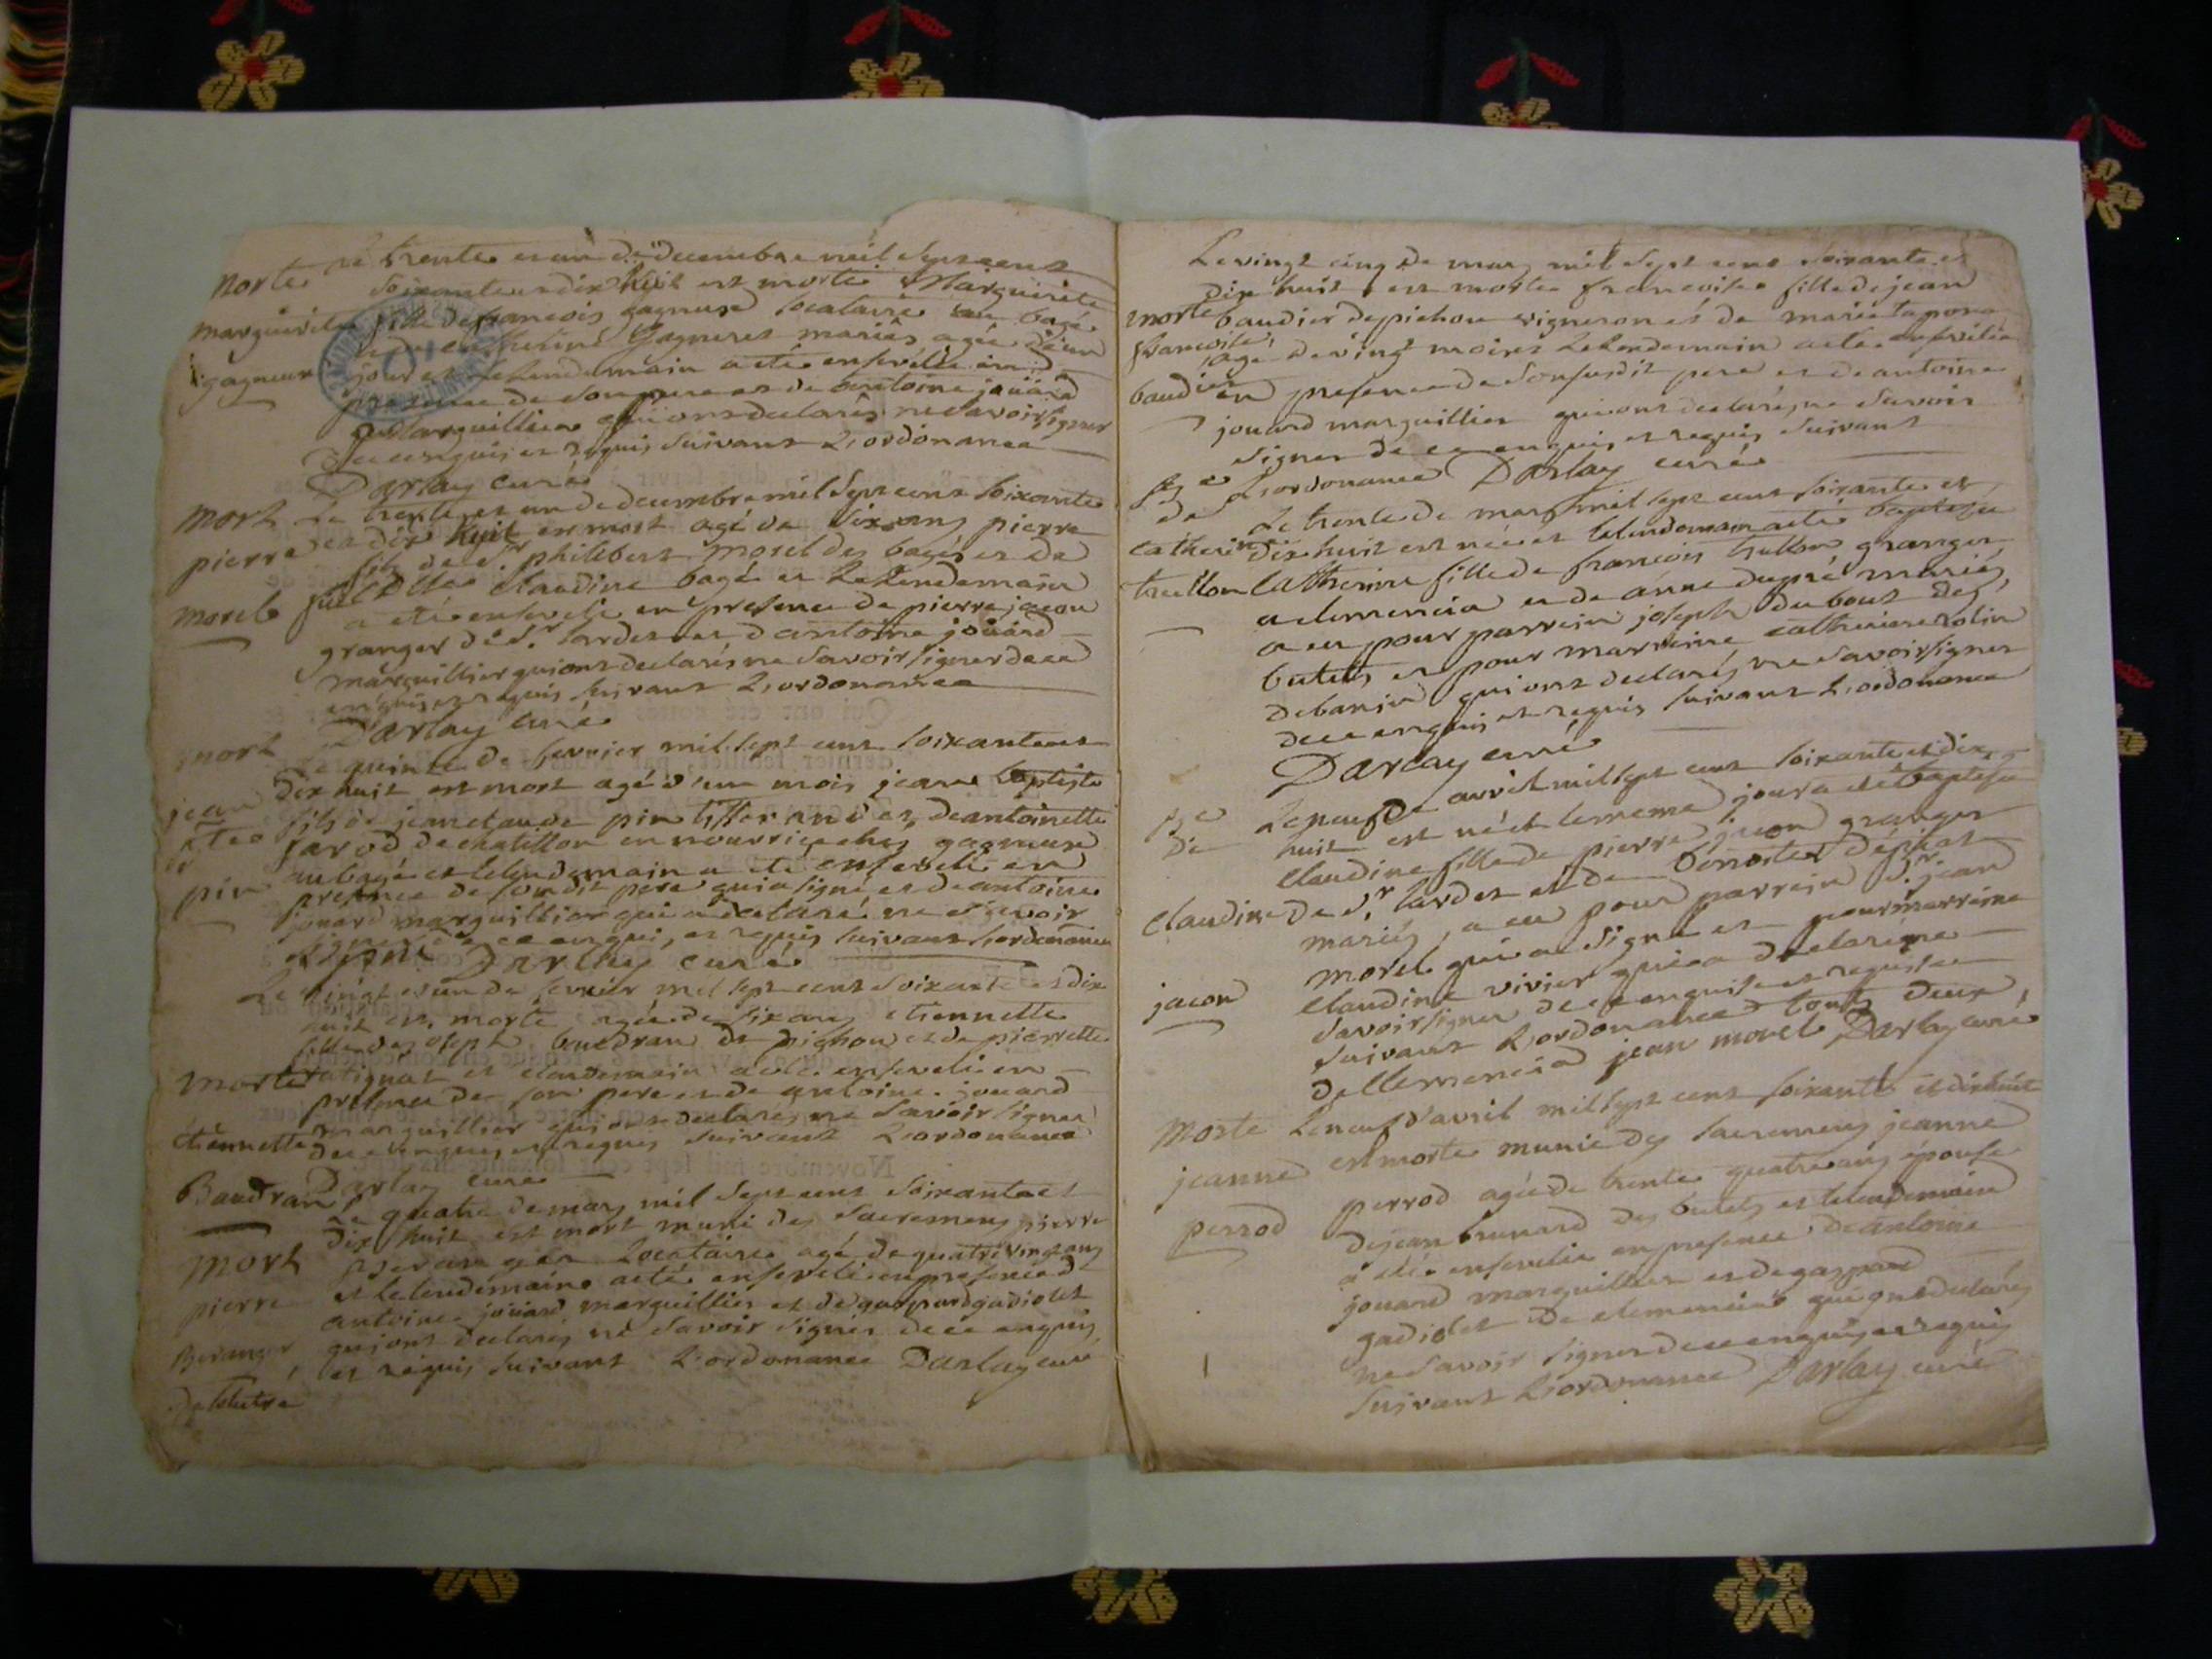 Morte Le trente et un de decembre mil sept cent
soixante et dix huit est morte Marguerite
marguerite fille de francois gagneux locataire au bagé
Gagneret mariés agée d'un
gagneux jour et le lendemain a eté ensevelie en
presence de son pere et de antoine joüard
marguillier qui ont declarés ne savoir signer
de ce enquis et requis suivant l'ordonance
Darlay curé
Mort Le trente et un de decembre mil sept cent soixante
et dix huit est mort agé de six ans pierre
pierre fils de Sr philibert morel des bagés et de
Dlle claudine bagé et le lendemain
morel a eté enseveli en presence de pierre jacon
granger de Sr lardet et d'antoine joüard
marguillier qui ont declarés ne savoir signer de ce
enquis et requis suivant l'ordonance
Darlay curé
mort Le quinze de fevrier mil sept cent soixante et
dix huit est mort agé d'un mois jean baptiste
jean fils de jean claude pin tisserand et de antoinette
btes farod de chatillon en nourrice chez gagneux
au bagé et le lendemain a eté enseveli en
pin presence de son dit pere qui a signé et de antoine
jouard marguillier qui a declaré ne savoir
signer de ce enquis et requis suivant l'ordonance
Darlay curé
Le vingt et un de fevrier mil sept cent soixante et dix
huit est morte agée de six ans etiennette
fille de joseph baudran de pichou et de pierrette
Morte ratignat et le lendemain a eté ensevelie en
presence de son pere et de antoine jouard
etiennette marguillier qui ont declarés ne savoir signer
de ce enquis et requis suivant l'ordonance
Baudran Darlay curé
Le quatre de mars mil sept cent soixante et
dix huit est mort muni des sacremens pierre
Mort Beranger locataire agé de quatre vingt ans
pierre et le lendemain a eté enseveli en presence d
antoine joüard marguillier et de gaspard gadiolet
Beranger qui ont declarés ne savoir signer de ce enquis
et requis suivant l'ordonance Darlay curé
Le vingt cinq de mars mil sept cent soixante et
dix huit est morte francoise fille de jean
morte baudier de pichou vigneron et de marie tapona
francoise agé de vingt mois et le lendemain a eté ensevelie
baudier en presence de son susdit pere et de antoine
jouard marguillier qui ont declarés ne savoir
signer de ce enquis et requis suivant
l'ordonance Darlay curé
bge de Le trente de mars mil sept cent soixante et
catherine dix huit est née et le lendemain a eté baptisée
trullon Catherine fille de francois trullon granger
a clemencia et de anne dupré mariés
a eu pour parrein joseph dubout des
butets et pour marreine catherine rolin
de banin qui ont declarés ne savoir signer
de ce enquis et requis suivant l'ordonance
Darlay curé
bge Le neuf de avril mil sept cent soixante et dix
de huit est née et le meme jour a eté baptisée
claudine fille de pierre jacon granger
Claudine de Sr lardet et de benoite dépirat
mariés, a eu pour parrein Sr jean
morel qui a signé et pour marreine
jacon claudine vivier qui a declaré ne
savoir signer de ce enquise et requise
suivant l'ordonance touts deux
de clemencia jean morel Darlay curé
Morte Le neuf d'avril mil sept cent soixante et dix huit
jeanne est morte munie des sacremens jeanne
perrod perrod agée de trente quatre ans épouse
de jean brunard des butets et le lendemain
a eté ensevelie en presence de antoine
jouard marguillier et de gaspard
gadiolet de clemencia qui ont declarés
ne savoir signer de ce enquis et requis
suivant l'ordonance Darlay curé